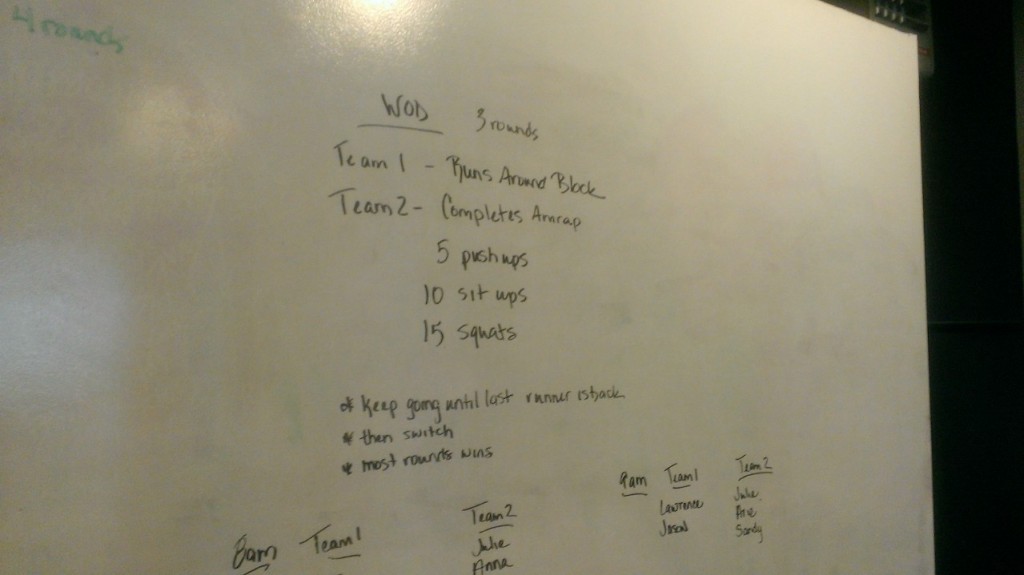 4 rounds
WOD 3 rounds
Team 1 - Runs Around Block
Team 2 - Completes Amrap
5 pushups
10 sit ups
15 squats
* Keep going until last runner is back
* then switch
* most rounds wins
8am Team 1 Team 2
Julie
Anna
9am Team 1 Team 2
Lawrence Julie
Jason
Sandy